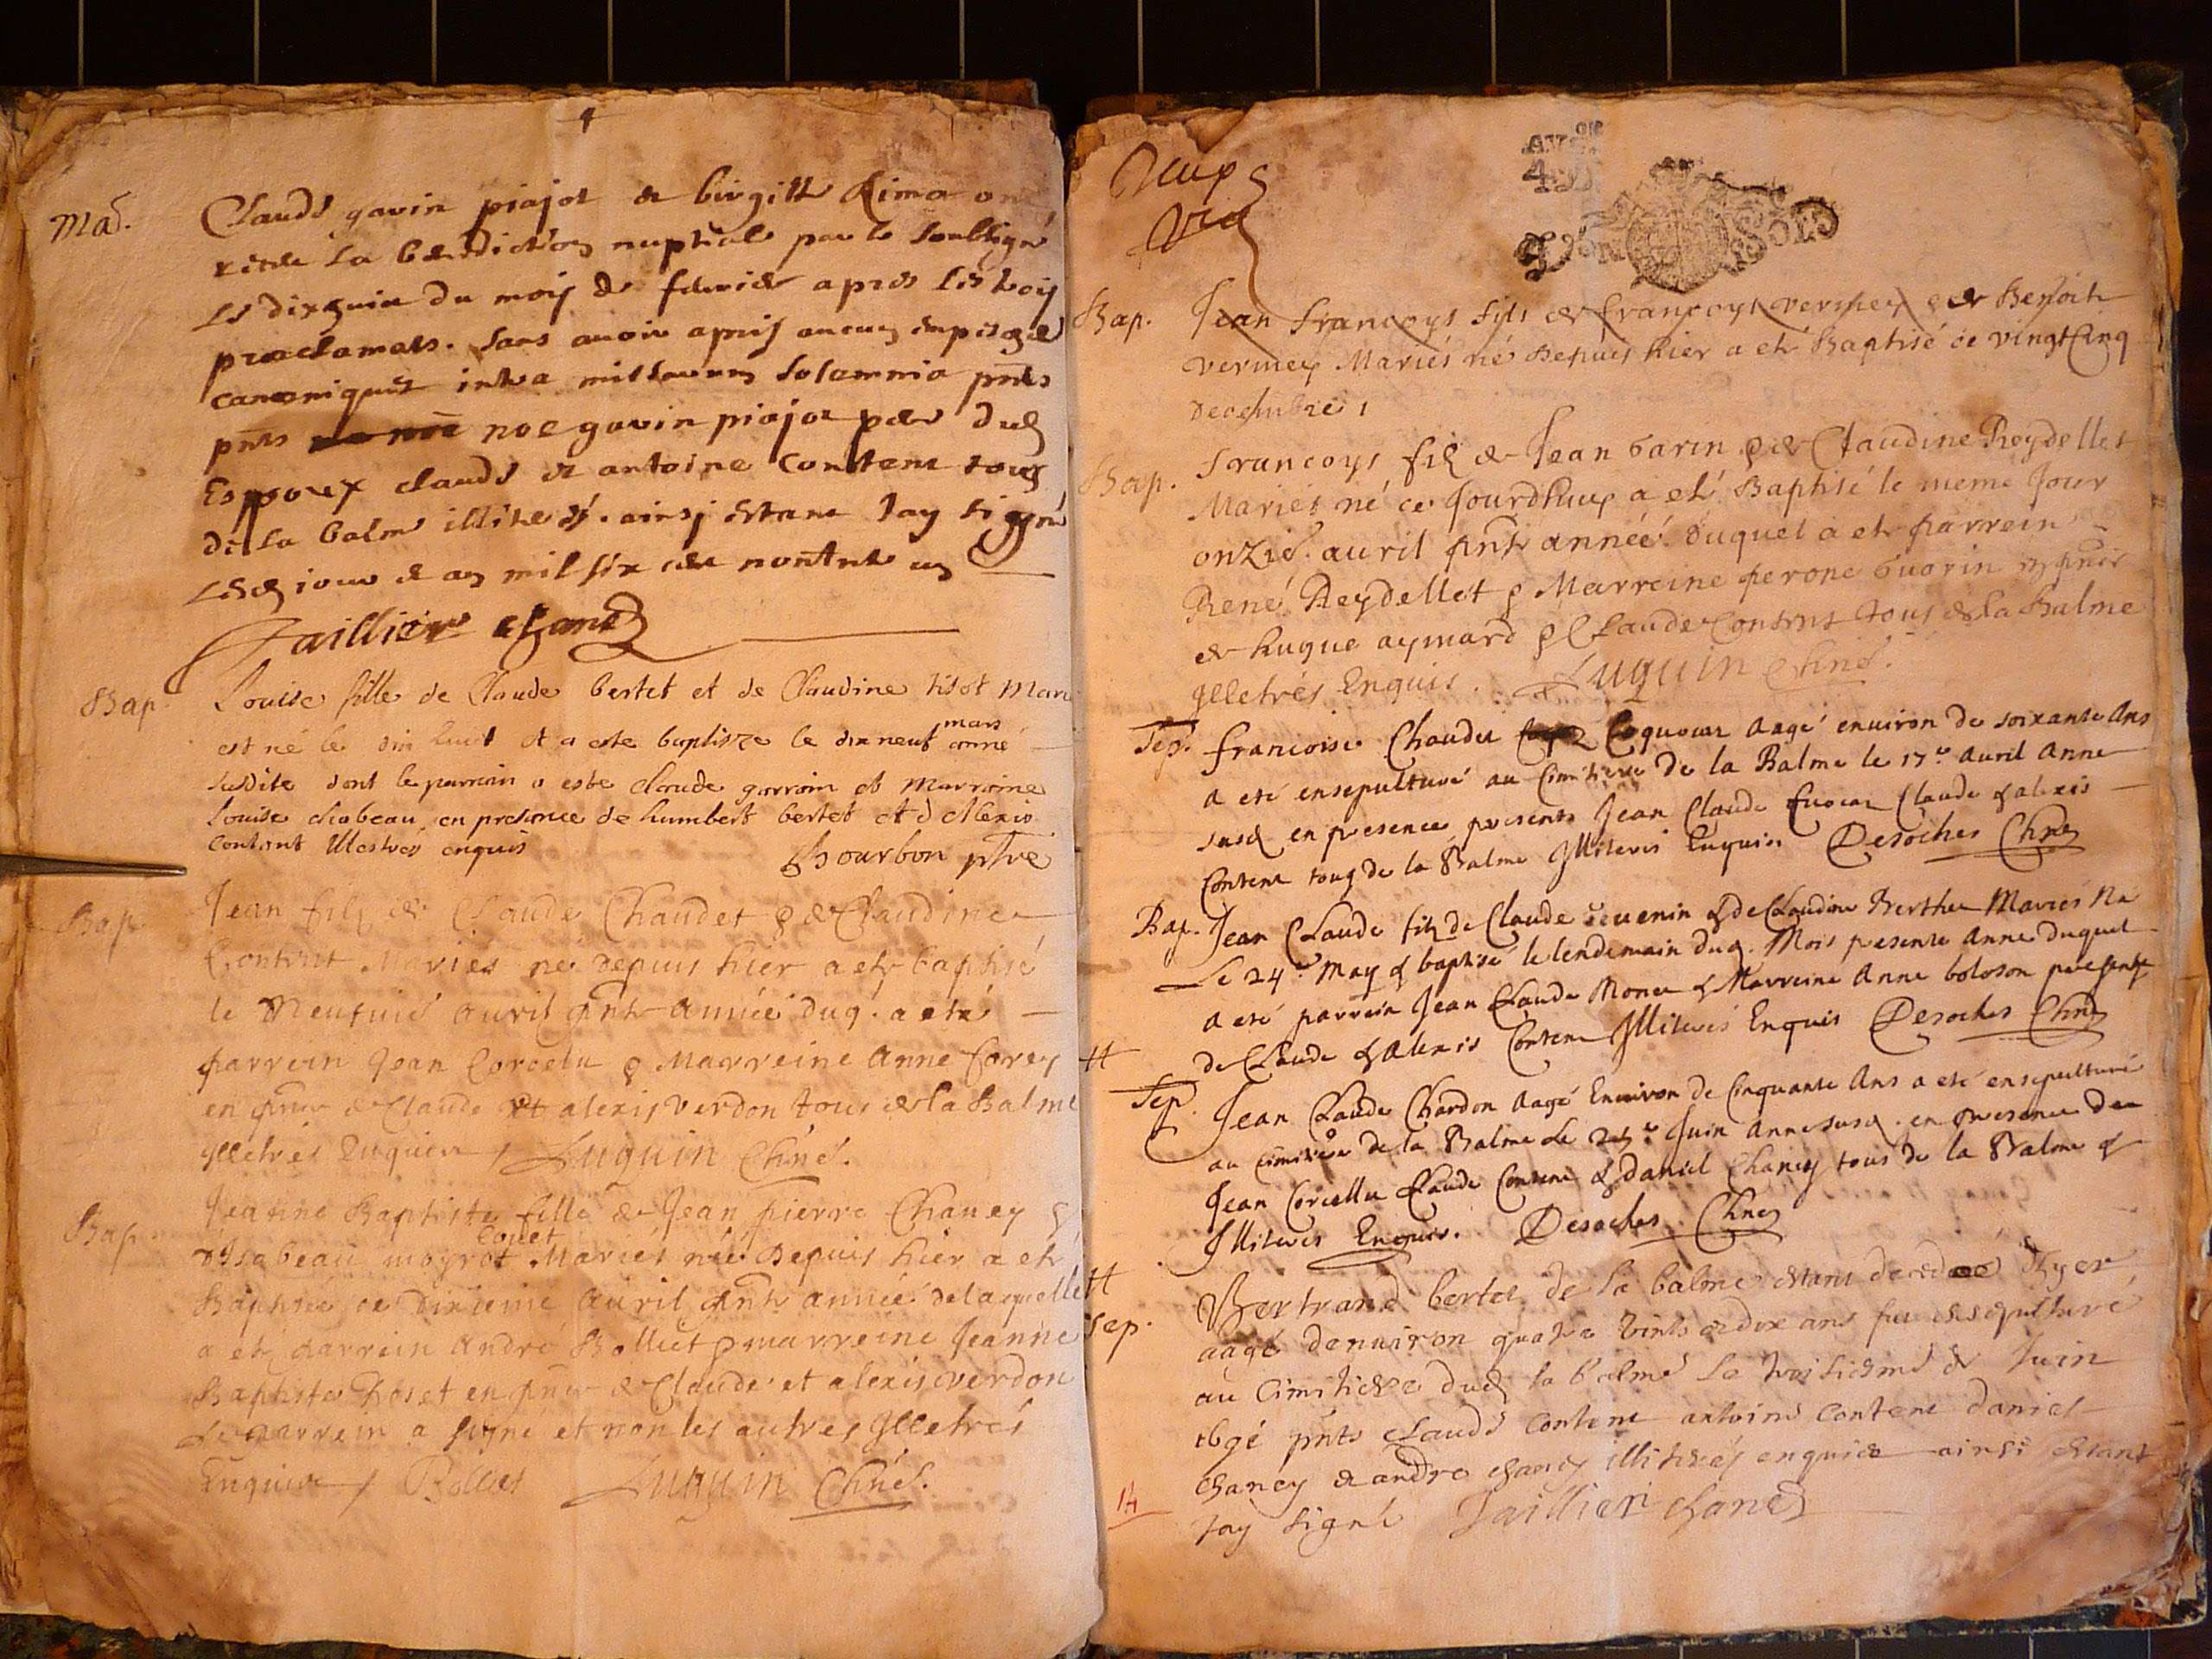 Mar.
Claude gavin piajot & birgitte Rima ont
receu la benediction nuptiale par le soubsigné
le dixhuict du mois de febvrier apres les trois
proclamats. sans avoir apris aucung empesche
canonique intra missarum solamnia pnts
pnts noe gavin piajot pere dud
Espoux claude & antoine content tous
de la balme illiterés. ainsj estant Jay signé
Lesd jour & an mil six cent nonante un
Jaillier chane
Bap.
Louise fille de Claude bertet et de Claudine tisot Mari
est né le dix huit et a este baptisze le dix neuf mars anné
susdite dont le parrain a este claude gorrain et Marraine
louise chabeau en presence de humbert bertet et d Alexis
Content Illestrés enquis Bourbon ptre
Bap.
Jean filz de Claude Chaudet & de Claudine
Content Mariés né depuis hier a eté baptisé
le Neufuie auril pnte année duq. a eté
parrein Jean Corcelu & Marreine Anne Corey
en pnce de Claude et alexis Verdon tous de la Balme
Jlletrés Enquis / Luguin Chne.
Bap.
Jeanne Baptiste fille de Jean pierre Chaney &
d'Isabeau moyrot Couet Mariés née Depuis hier a eté
Baptisée ce Dixieme auril pnte année de laquelle
a eté parrein André Bolliet & marreine Jeanne
Baptiste Poset en pnce de Claude et alexis verdon
Le parrein a signé et non les autres Jlletrés
Enquis / Bolliet Luguin Chne.
Bap. Jean francoys fils de francoys vermey & de Benoite
vermey Mariés né Depuis hier a eté Baptisé ce vingt Cinq
Decembre /
Bap. francoys filz de Jean barin & de Claudine Reydellet
Mariés né ce Jourdhuy a eté Baptisé le meme Jour
onzie. auril pnte année. duquel a eté parrein
René Reydellet & Marreine perone Guarin en pnce
de huque aymard & Claude Content tous de la Balme
Jlletrés Enquis. Luguin Chne.
Sep. francoise Chaudet Coquouar aagé enuiron de soixante Ans
a eté ensepulturé au Cimitiere de la Balme le 17e auril Anne
susd en presence presents Jean Claude Claude & alexis
Content tous de la Balme Jlliterés Enquis Desoches Chne
Bap. Jean Claude filz de Claude & de Claudine Berthet Mariés Né
Le 24e May & baptisé le lendemain duq. Mois presente Anne duquel
a eté parrein Jean Claude Monet & Marreine Anne boloson presence
de Claude & Alexis Content Jlliterés Enquis Desoches Chne
#
Sep. Jean Claude Chardon aagé Enuiron de Cinquante Ans a eté ensepulturé
au cimitiere de la Balme Le Juin Anne susd. en presence de
Jean Corcellu Claude Content & Daniel Chaney tous de la Balme &
Jlliterés Enquis. Desoches Chne
#
sep. Bertrand bertet de la balme estant decedé Hyer
aagé denuiron quatre vints & dix ans fut ensepulturé
au Cimitiere dud la balme Le troisiesme de Juin
1691 pnts claude content antoine content daniel
chaney & andre chaney illiterés enquis ainsi estant
Jay signé Jaillier chane
14